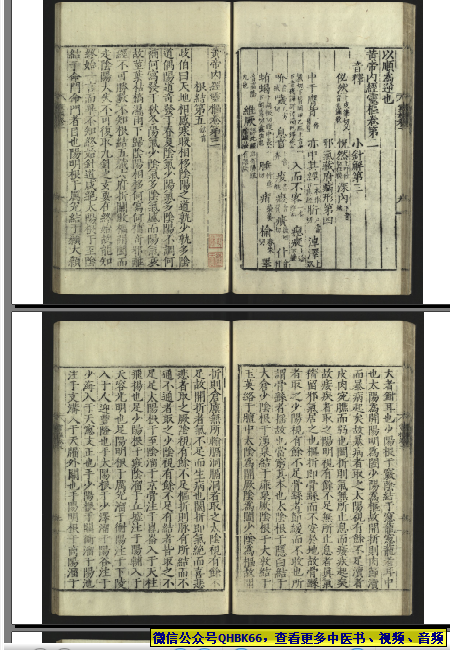 以順為逆也
黃帝內經靈樞卷第二
音釋
小針解第三
邪氣藏府病形第四
黃帝內經靈樞卷
根結第五
岐伯曰天地相感寒暖相移陰陽之道孰少孰多陰
道偶陽道奇發于春夏陰氣少陽氣多陰陽不調何
補何寫發于秋冬陽氣少陰氣多陰氣盛而陽氣衰
故莖葉枯槁濕雨下歸陰陽相移何寫何補奇邪離
經不可勝數不知根結五藏六府折關敗樞開闔而
走陰陽大失不可復取九針之玄要在終始故能知
終始一言而畢不知終始針道咸絕太陽根于至陰
結于命門命門者目也陽明根于厲兌結于顙大顙
大者鉗耳也少陽根于竅陰結于窗籠窗籠者耳中
也太陽為開陽明為闔少陽為樞故開折則肉節瀆
而暴病起矣故暴病者取之太陽視有餘不足瀆者
皮肉宛膲而弱也闔折則氣無所止息而痿疾起矣
故痿疾者取之陽明視有餘不足無所止息者真氣
稽留邪氣居之也樞折即骨繇而不安於地故骨繇
者取之少陽視有餘不足骨繇者節緩而不收也所
謂骨繇者搖故也當窮其本也太陰根于隱白結于
太倉少陰根于湧泉結于廉泉厥陰根于大敦結于
玉英絡于膻中太陰為開厥陰為闔少陰為樞故開
折則倉廩無所輸膈洞膈洞者取之太陰視有餘不
足故開折者氣不足而生病也闔折即氣絕而喜悲
悲者取之厥陰視有餘不足樞折則脈有所結而不
通不通者取之少陰視有餘不足有結者皆取之不
足足太陽根于至陰溜于京骨注于崑崙入于天柱
飛揚也足少陽根于竅陰溜于丘墟注于陽輔入于
天容光明也足陽明根于厲兌溜于衝陽注于下陵
入于人迎豐隆也手太陽根于少澤溜于陽谷注于
少海入于天窗支正也手少陽根于關衝溜于陽池
注于支溝入于天牖外關也手陽明根于商陽溜于
微信公众号QHBK66，查看更多中医书、视频、音频